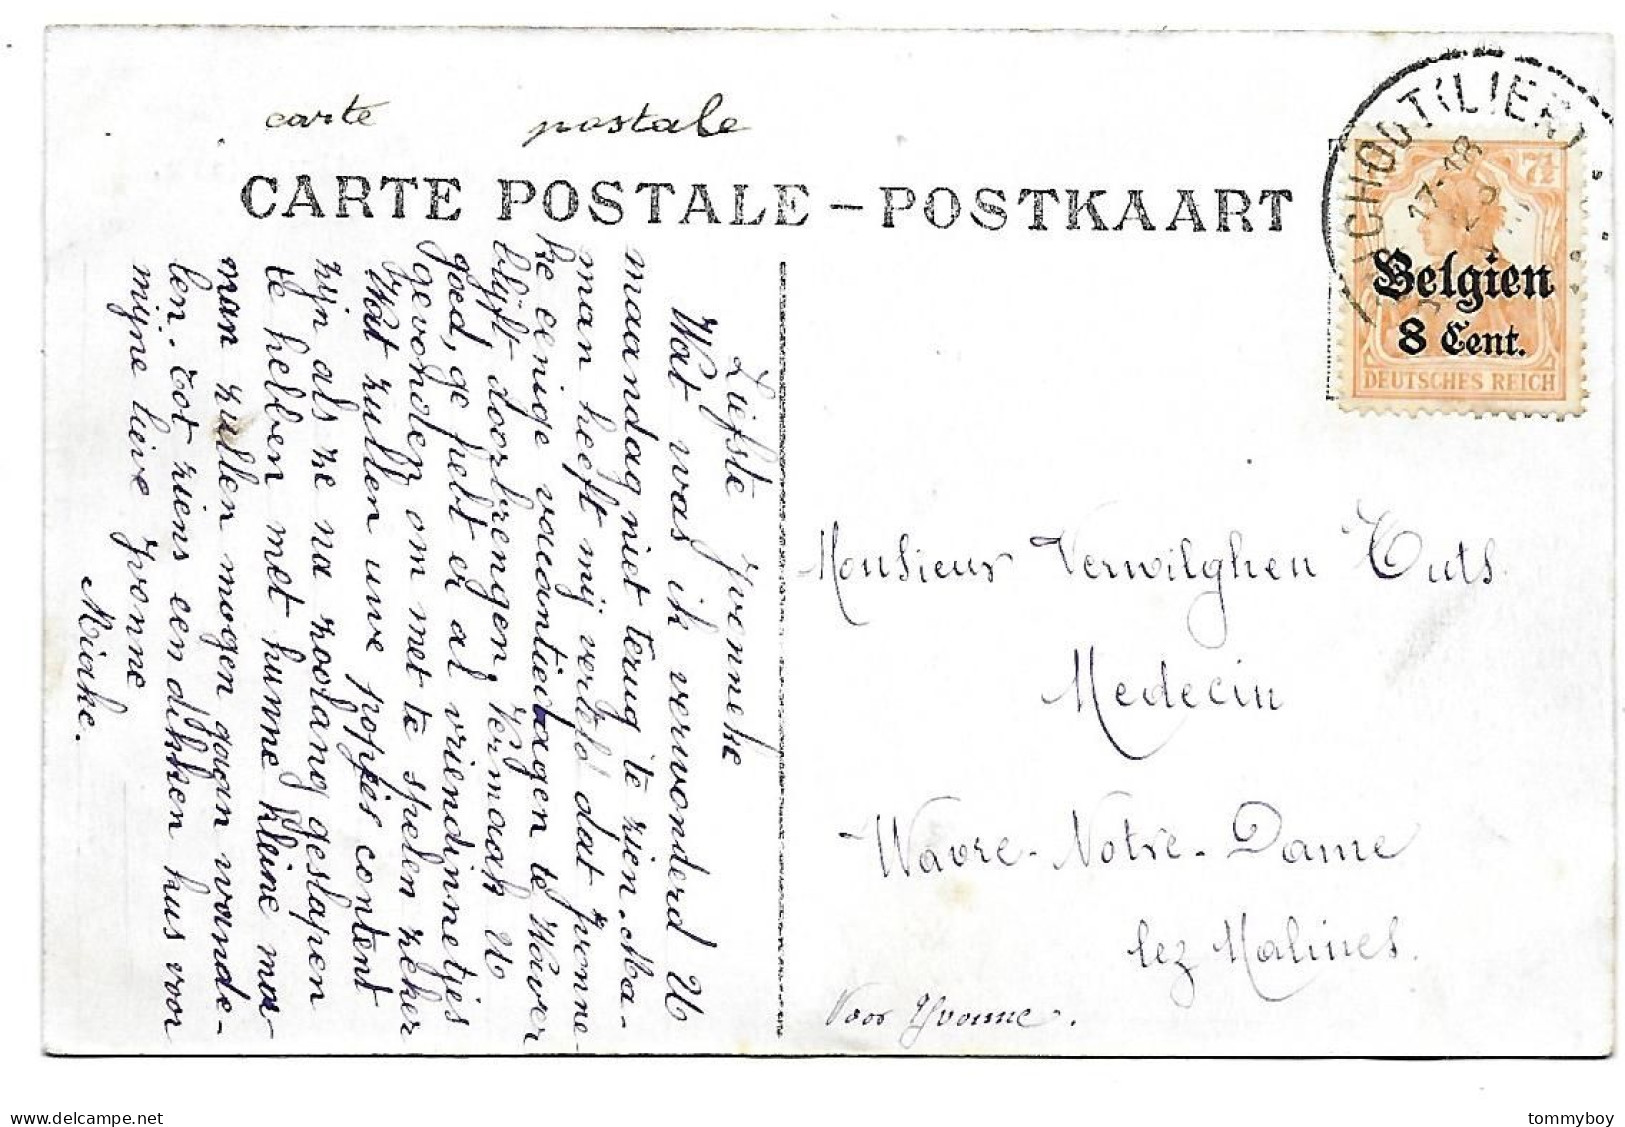 carte postale
CARTE POSTALE – POSTKAART
SCHOOT (LIER)
17-18
Belgien
8 Cent.
7½
DEUTSCHES REICH
Liefste Yvonneke
Wat was ik verwonderd U
maandag niet terug te zien. Ma-
man heeft mij verteld dat Yvonne-
ke eenige vacantiedagen te Waver
blijft doorbrengen. Vermaak U
goed, ge hebt er al vriendinnetjes
gevonden om met te spelen zeker
Wat zullen uwe popjes content
zijn als ze na zoolang geslapen
te hebben met hunne kleine ma-
man zullen mogen gaan wande-
len. Tot ziens een dikken kus voor
mijne lieve Yvonne
Miake.
Monsieur Verwilghen Cuts
Medecin
Wavre-Notre-Dame
lez Malines.
Voor Yvonne.
tommyboy